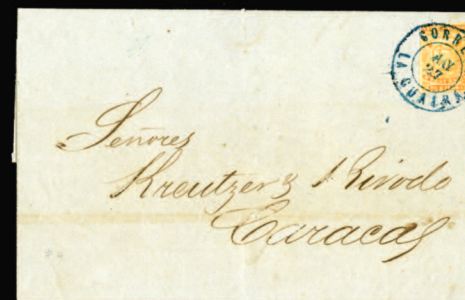 CORRE
LA GUAIRA
MAY
27
Señores
Kreutzer &
Caracas